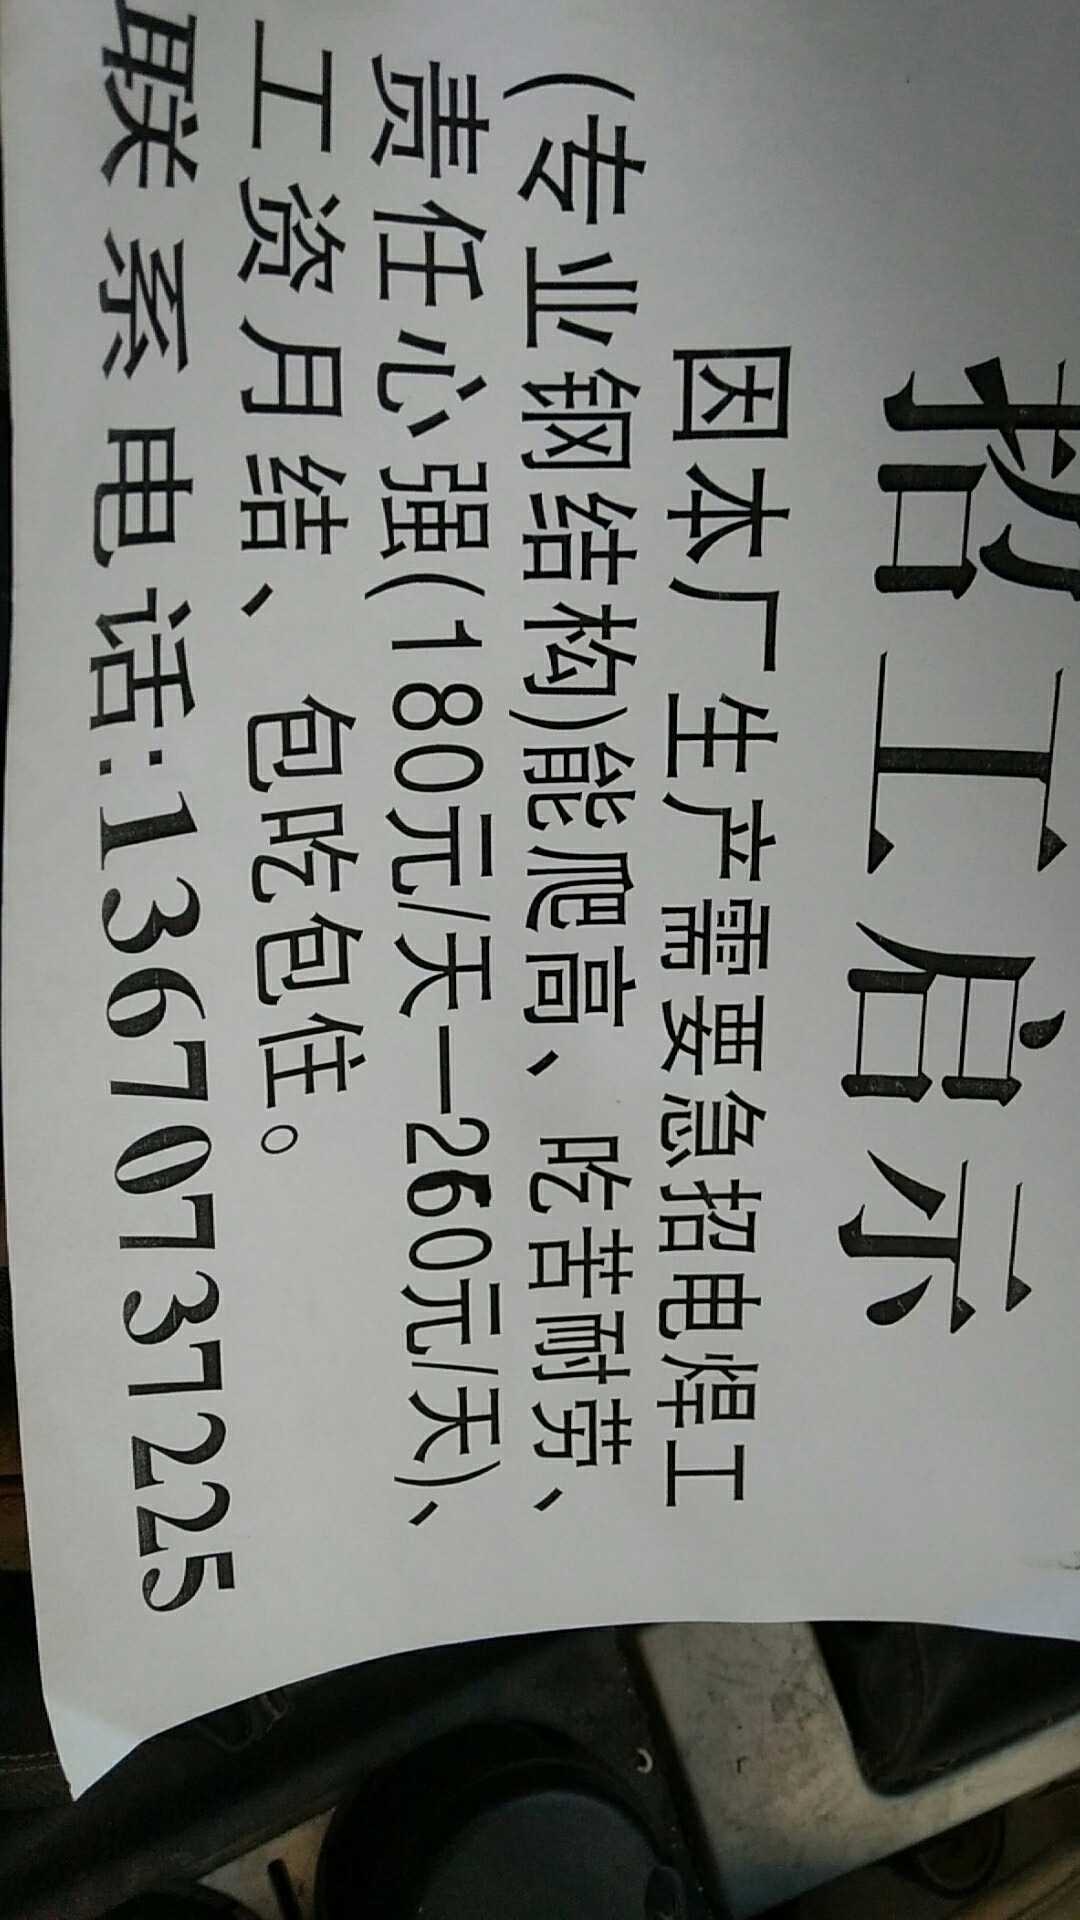 招工启示
因本厂生产需要急招电焊工
(专业钢结构)能爬高、吃苦耐劳、
责任心强(180元/天—260元/天)、
工资月结、包吃包住。
联系电话:13670737225